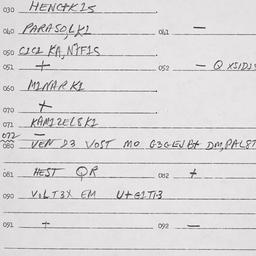 030 HENCTKIS
040 PARASOLKI 041 —
050 CICI KA,NTFIS
051 + 052 — Q XSIDIS
060 MINARKI
070 +
071 KAMIZELSKI
072 —
080 VEN D3 VOST MO G3GEVB+ DM,PAL8T
081 HEST QR 082 +
090 VOLT3X EM U+GITI3
091 + 092 —